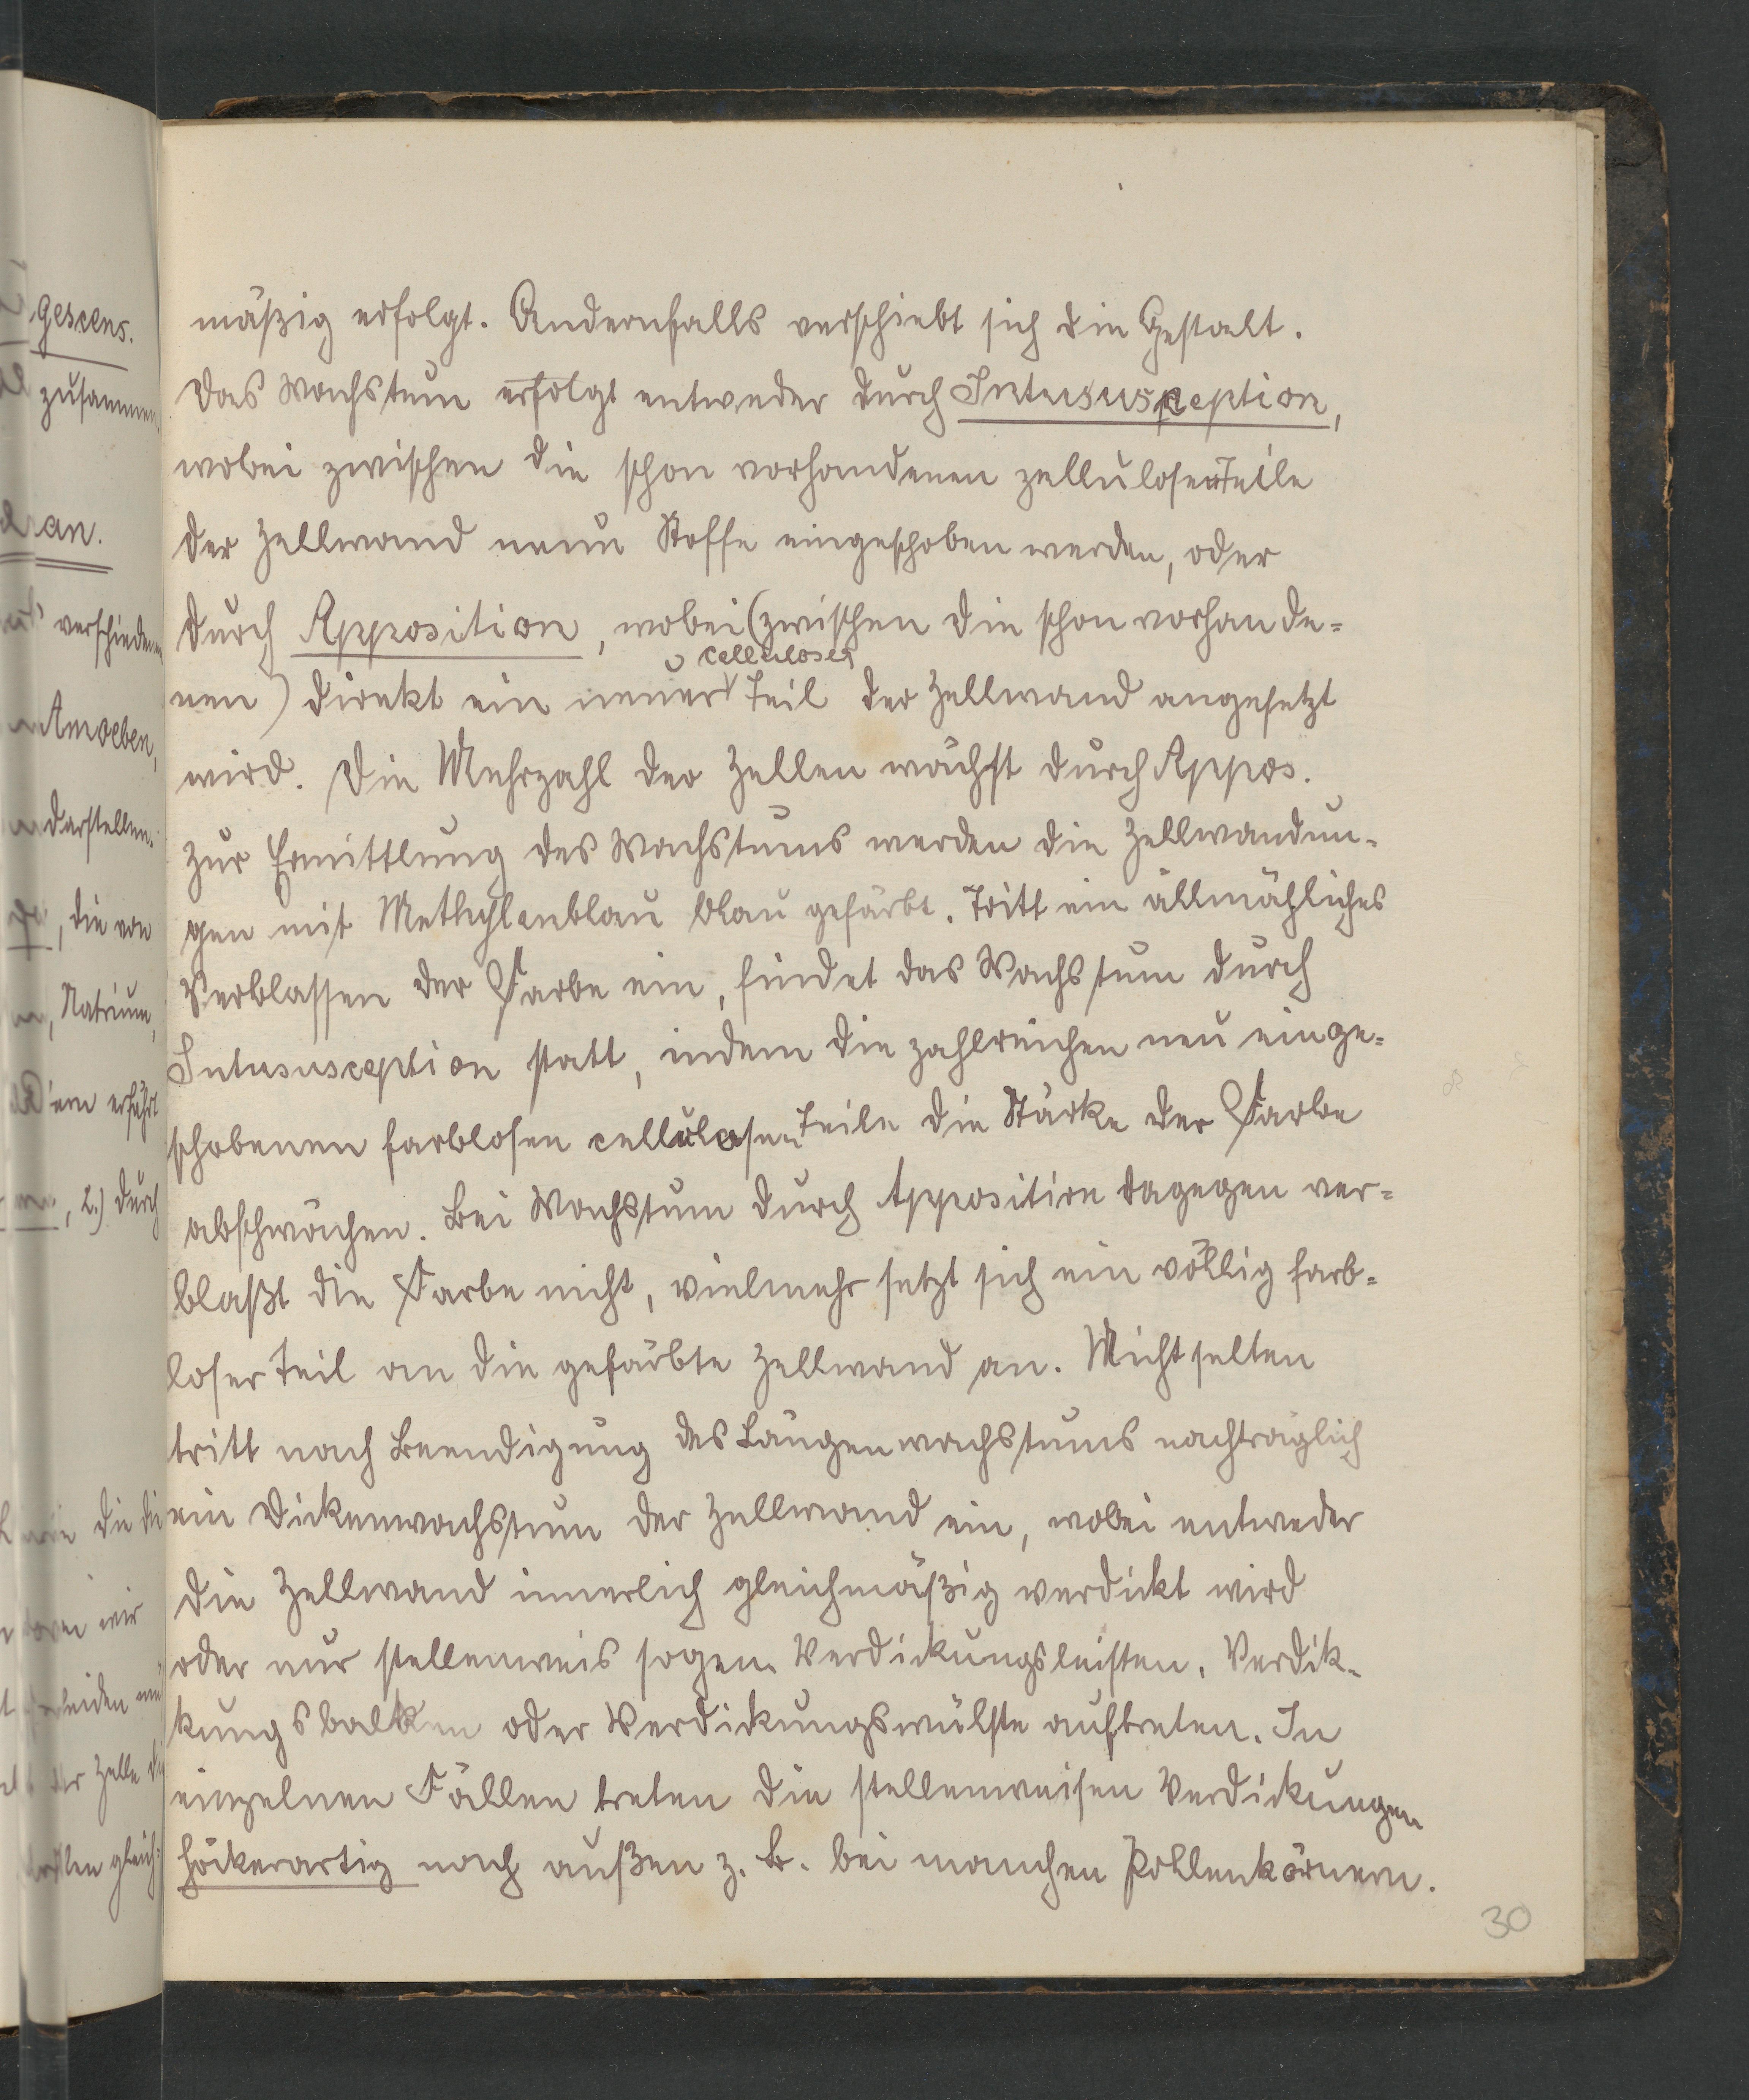 gescens.
zusammen
an.
verschieden
Amoeben,
darstellen.
, die von
, Natrium,
erfährt
, 2.) durch
die die
wir
der Zelle di
gleich-
mäßig erfolgt. Andernfalls verschiebt sich die Gestalt.
Das Wachstum erfolgt entweder durch Intususception,
wobei zwischen die schon vorhandenen zellulosen Teile
der Zellwand neue Stoffe eingeschoben werden, oder
durch Apposition, wobei (zwischen die schon vorhande-
celluloser
nen) direkt ein neuer Teil der Zellwand angesetzt
wird. Die Mehrzahl der Zellen wächst durch Appos.
Zur Ermittlung des Wachstums werden die Zellwandun-
gen mit Methylenblau blau gefärbt. Tritt ein allmähliches
Verblassen der Farbe ein, findet das Wachstum durch
Intususception statt, indem die zahlreichen neu einge-
schobenen farblosen cellulosen Teile die Stärke der Farbe
abschwächen. Bei Wachstum durch Apposition dagegen ver-
blaßt die Farbe nicht, vielmehr setzt sich ein völlig farb-
loser Teil an die gefärbte Zellwand an. Nicht selten
tritt nach Beendigung des Längenwachstums nachträglich
ein Dickenwachstum der Zellwand ein, wobei entweder
die Zellwand innerlich gleichmäßig verdickt wird
oder nur stellenweis sogen. Verdickungsleisten, Verdik-
kungsbalken oder Verdickungswülste auftreten. In
einzelnen Fällen treten die stellenweisen Verdickungen
höckerartig nach außen z. B. bei manchen Pollenkörnern.
30